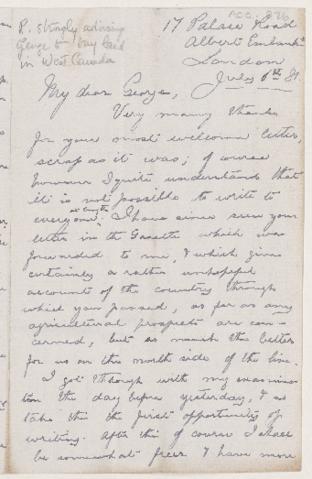 R. strongly advising
George to buy land
in West Canada
ACC. 826
17 Palace Road
Albert Embankt
London
July 6th 81.
My dear George,
Very many thanks
for your most welcome letter,
scrap as it was; of course
however I quite understand that
it is not possible to write to
everyone at length. I have since seen your
letter in the Gazette which was
forwarded to me, & which gives
certainly a rather unhopeful
account of the country through
which you passed, as far as any
agricultural prospects are con-
cerned, but so much the better
for us on the north side of the line.
I got through with my examina-
tion the day before yesterday, & so
take this the first opportunity of
writing. After this of course I shall
be somewhat freer & have more